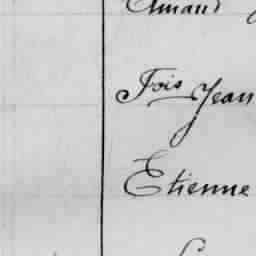 Amand
Fois Jean
Etienne